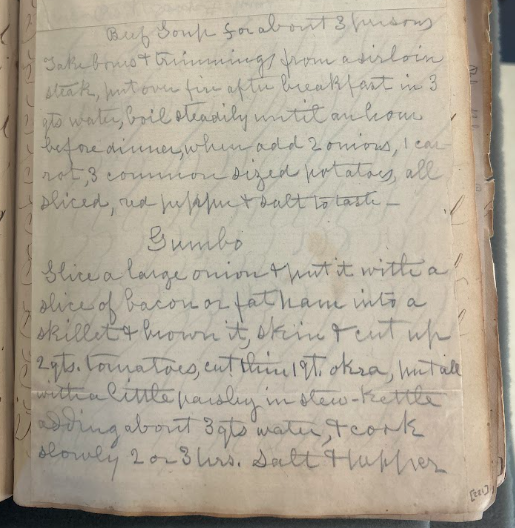 Beef Soup for about 3 persons
Take bones & trimmings from a sirloin
steak, put over fire after breakfast in 3
qts water, boil steadily until an hour
before dinner, when add 2 onions, 1 car-
rot, 3 common sized potatoes, all
sliced, red pepper & salt to taste —
Gumbo
Slice a large onion & put it with a
slice of bacon or fat ham into a
skillet & brown it, skin & cut up
2 qts. tomatoes, cut thin 1 qt. okra, put all
with a little parsley in stew-kettle
adding about 3 qts water, & cook
slowly 2 or 3 hrs. Salt & pepper